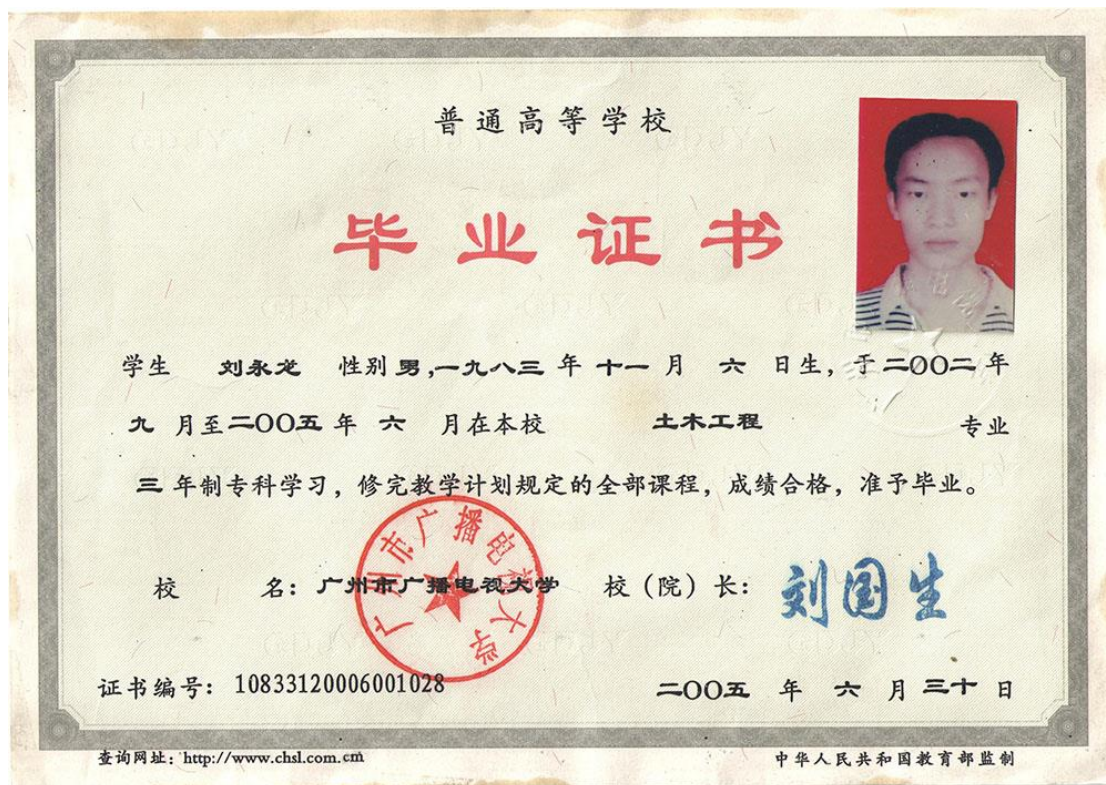 普通高等学校
毕业证书
学生 刘永龙 性别 男,一九八三 年 十一 月 六 日生，于 二〇〇二 年
九 月至 二〇〇五 年 六 月在本校 土木工程 专业
三 年制专科学习，修完教学计划规定的全部课程，成绩合格，准予毕业。
校 名：广州市广播电视大学 校（院）长：刘国生
广州市广播电视大学
证书编号：10833120006001028 二〇〇五 年 六 月 三十 日
查询网址：http://www.chsl.com.cm 中华人民共和国教育部监制